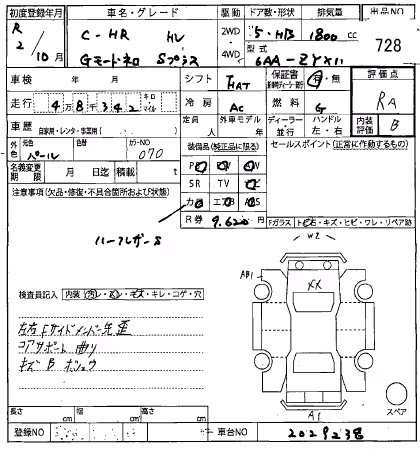 初度登録年月 車名・グレード 駆動 ドア数・形状 排気量 出品NO
R 2 / 10月 C-HR HV 2WD・4WD 5・HB 1800 cc 728
Gモード・ネロ Sプラス 型式 6AA-ZYX11
車検 年 月 シフト FAT 保証書 有・無 評価点
走行 4万8千342 キロ マイル 冷房 AC 燃料 G RA
車歴 自家用・レンタ・事業用( ) 定員 人 外車モデル 年 ディーラー 並行 ハンドル 左・右 内装評価 B
外色 元色 パール 色替 カラーNO 070 装備品(純正品に限る) セールスポイント(正常に作動するもの)
名義変更期限 月 日 積載 t SR TV
注意事項(欠品・修復・不具合箇所および状態)
R券 9,620 Fガラス トビ石・キズ・ヒビ・ワレ・リペア跡
ハーフレザーS
W2
AB1
XX
検査員記入 内装 汚レ・スレ・キズ・キレ・コゲ・穴
左右Fサイドメンバー先歪
コアサポート曲り
キズB ボコ
スペア
長さ cm 幅 cm 高さ cm
A1
登録NO 車台NO 2029238